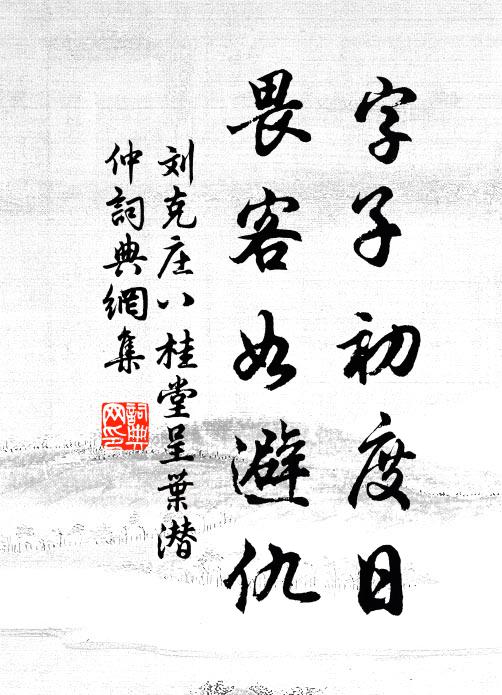 字子初度日
畏客如避仇
刘克庄八桂堂呈葉潜
仲詞典網集
詞典网印